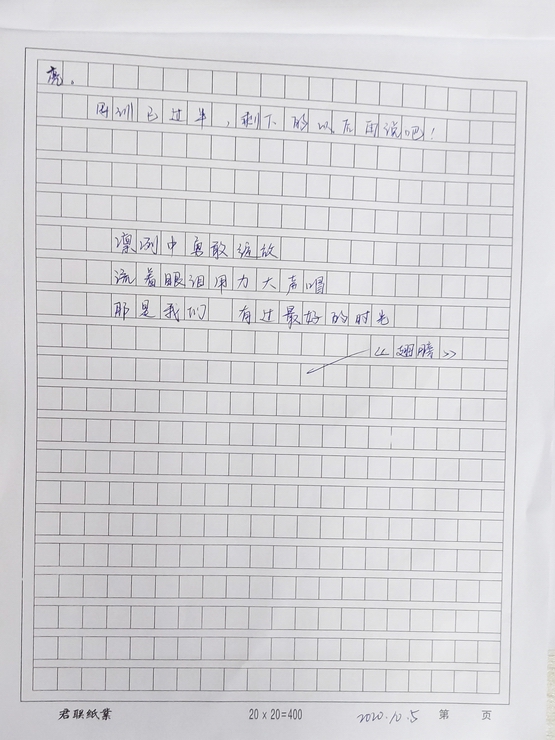 亮。
国训已过半，剩下的以后再说吧！
凛冽中勇敢绽放
流着眼泪用力大声唱
那是我们 有过最好的时光
《翅膀》
君联紙業 20×20=400 2020.10.5 第 页